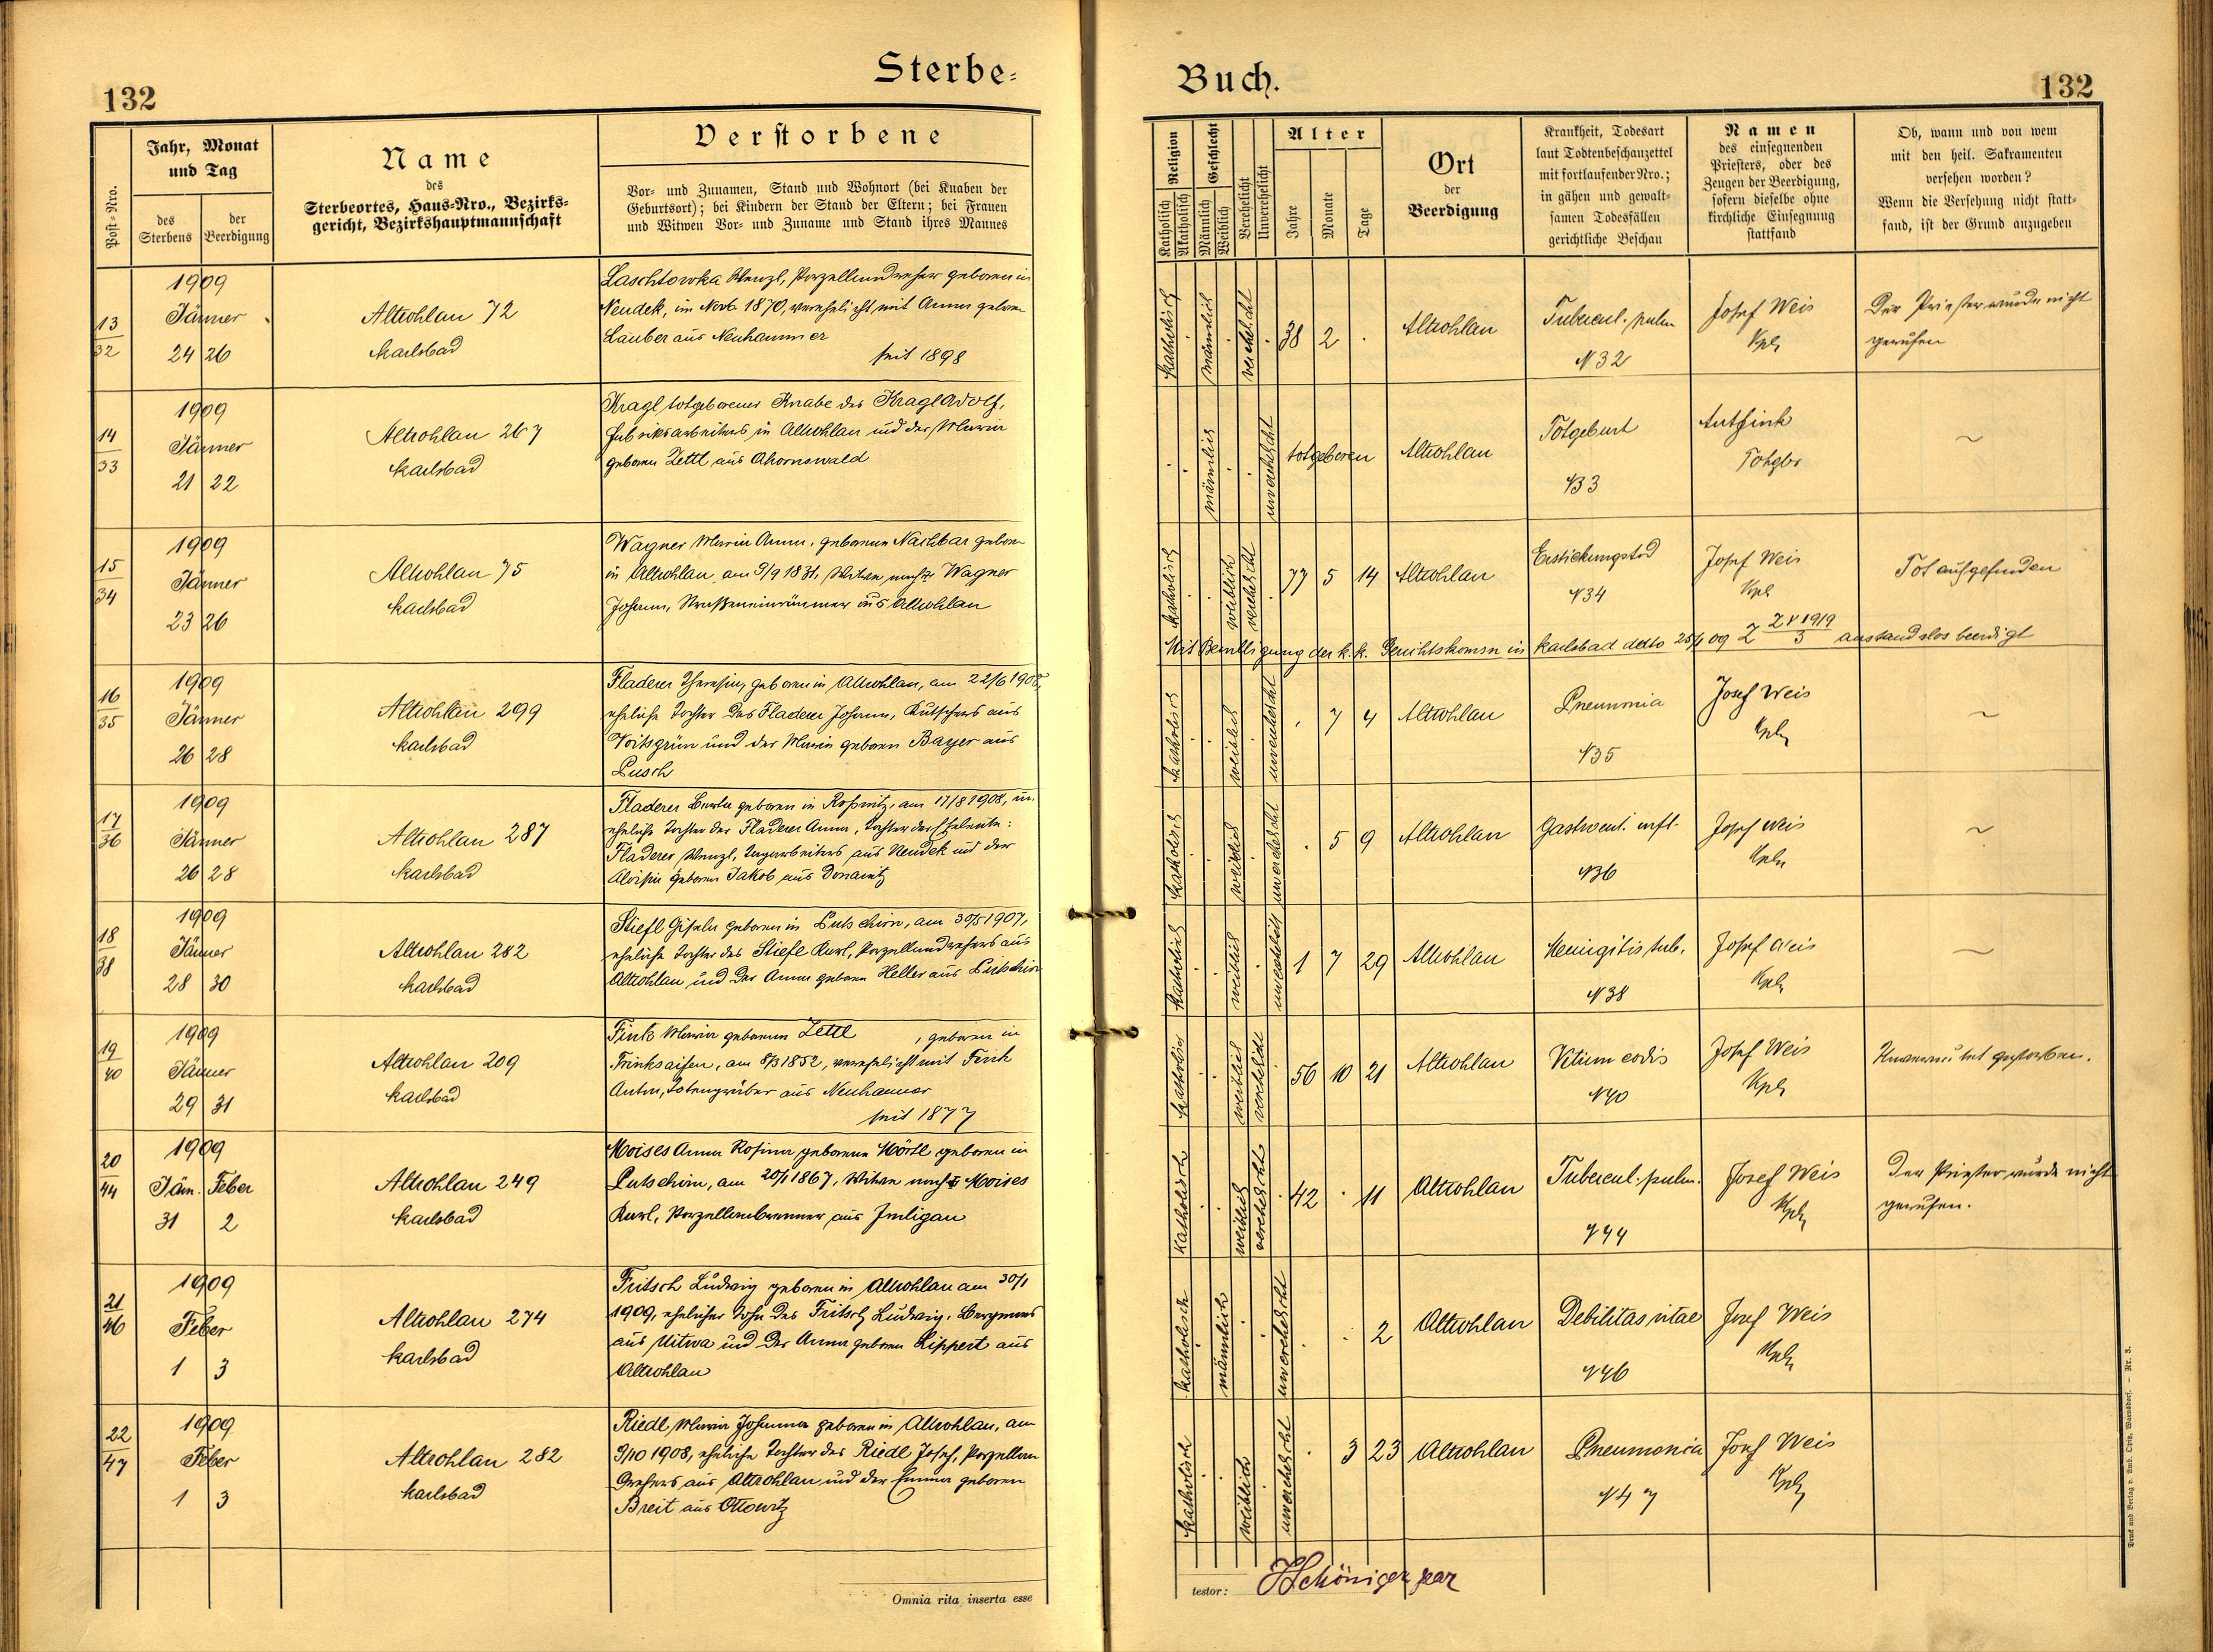 Sterbe-
132
Post-Nro.
Jahr, Monat
und Tag
des
Sterbens
der
Beerdigung
Name
des
Sterbeortes, Haus-Nro., Bezirks-
gericht, Bezirkshauptmannschaft
Verstorbene
Vor- und Zunamen, Stand und Wohnort (bei Knaben der
Geburtsort); bei Kindern der Stand der Eltern; bei Frauen
und Witwen Vor- und Zuname und Stand ihres Mannes
13
32
1909
Jänner
24 26
Altrohlau 72
Karlsbad
Laschtowka Wenzl, Porzellandreher geboren in
Neudek, im Novb. 1870, verehelicht mit Anna geboren
Lauber aus Neuhammer
seit 1898
14
33
1909
Jänner
21 22
Altrohlau 267
Karlsbad
Kragl totgeborener Knabe des Kragl Adolf,
Fabriksarbeiters in Altrohlau und der Maria
geboren Zettl aus Ahornswald
15
34
1909
Jänner
23 26
Altrohlau 75
Karlsbad
Wagner Maria Anna, geborene Nachbar geboren
in Altrohlau, am 9/9 1831, Witwe nach Wagner
Johann, Straßeneinräumer aus Altrohlau
16
35
1909
Jänner
26 28
Altrohlau 299
Karlsbad
Fladerer Theresia, geboren in Altrohlau, am 22/6 1908,
eheliche Tochter des Fladerer Johann, Kutschers aus
Voitsgrün und der Maria geboren Bayer aus
Pusch
17
36
1909
Jänner
26 28
Altrohlau 287
Karlsbad
Fladerer Berta geboren in Roßnitz, am 17/8 1908, un-
eheliche Tochter der Fladerer Anna, Tochter der Eheleute:
Fladerer Wenzl, Tagarbeiters aus Neudek und der
Aloisia geboren Jakob aus Donawitz
18
38
1909
Jänner
28 30
Altrohlau 282
Karlsbad
Stiefl Gisela geboren in Putschirn, am 30/5 1907,
eheliche Tochter des Stiefl Karl, Porzellandrehers aus
Altrohlau und der Anna geboren Heller aus Putschirn
19
40
1909
Jänner
29 31
Altrohlau 209
Karlsbad
Fink Maria geborene Zettl, geboren in
Trinksaifen, am 8/3 1852, verehelicht mit Fink
Anton, Totengräber aus Neuhammer
seit 1877
20
44
1909
Jän. Feber
31 2
Altrohlau 249
Karlsbad
Moises Anna Rosina geborene Hörtl geboren in
Putschirn, am 20/1 1867, Witwe nach Moises
Karl, Porzellanbrenner aus Imligau
21
46
1909
Feber
1 3
Altrohlau 274
Karlsbad
Fritsch Ludwig geboren in Altrohlau am 30/1
1909, ehelicher Sohn des Fritsch Ludwig, Bergmanns
aus Uitwa und der Anna geboren Lippert aus
Altrohlau
22
47
1909
Feber
1 3
Altrohlau 282
Karlsbad
Riedl Maria Johanna geboren in Altrohlau, am
9/10 1908, eheliche Tochter des Riedl Josef, Porzellan
Drehers aus Altrohlau und der Emma geboren
Breit aus Ottowitz
Omnia rita inserta esse
Buch.
132
Religion
Katholisch
Akatholisch
Geschlecht
Männlich
Weiblich
Verehelicht
Unverehelicht
Alter
Jahre
Monate
Tage
Ort
der
Beerdigung
Krankheit, Todesart
laut Todtenbeschauzettel
mit fortlaufender Nro.;
in gähen und gewalt-
samen Todesfällen
gerichtliche Beschau
Namen
des einsegnenden
Priesters, oder des
Zeugen der Beerdigung,
sofern dieselbe ohne
kirchliche Einsegnung
stattfand
Ob, wann und von wem
mit den heil. Sakramenten
versehen worden?
Wenn die Versehung nicht statt-
fand, ist der Grund anzugeben
katholisch männlich verehelicht 38 2 . Altrohlau
Tubercul. pulm
N 32
Josef Weis
Kpl.
Der Priester wurde nicht
gerufen
männlich unverehelicht totgeboren Altrohlau
Totgeburt
N33
Ant Fink
Totgbr
~
katholisch weiblich verehelicht 77 5 14 Altrohlau
Erstickungstod
N34
Josef Weis
Kpl
Tot aufgefunden
Mit Bewilligung der k.k. Gerichtskommn in Karlsbad detto 25/1 09 Z anstandslos beerdigt
katholisch weiblich unverehelicht . 7 4 Altrohlau
Pneumonia
N35
Josef Weis
Kpl.
~
katholisch weiblich unverehelicht . 5 9 Altrohlau
Gastroent.
N36
Josef Weis
Kpln
~
katholisch weiblich unverehelicht 1 7 29 Altrohlau
Menigitis tub.
N38
Josef Weis
Kpl.
~
katholisch weiblich verehelicht 56 10 21 Altrohlau
Vitium cordis
N40
Josef Weis
Kpl.
Unvermutet gestorben.
katholisch weiblich verehelicht 42 . 11 Altrohlau
Tubercul. pulm.
N44
Josef Weis
Kpl.
Der Priester wurde nicht
gerufen.
katholisch männlich unverehelicht . . 2 Altrohlau
Debilitas vitae
N46
Josef Weis
Kpl.
katholisch weiblich unverehelicht . 3 23 Altrohlau
Pneumonia
N47
Josef Weis
Kpl.
testor:
Druck und Verlag v. Amb. Opitz, Warnsdorf. – Nr. 3.